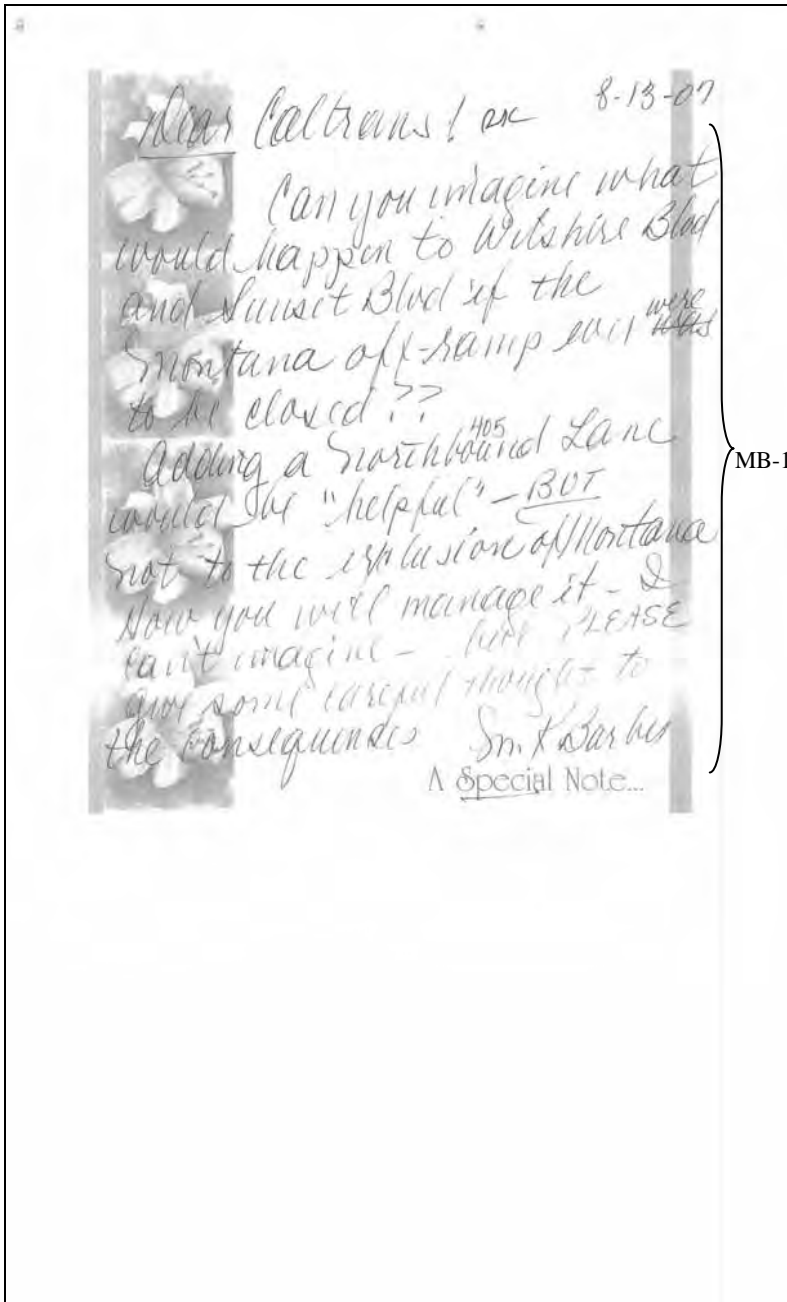 8-13-07
Dear Caltrans!
Can you imagine what
would happen to Wilshire Blvd
and Sunset Blvd if the
Montana off-ramp ever was were
to be closed??
Adding a Northbound 405 Lane
would be "helpful" – BUT
not to the explusion of Montana
How you will manage it – I
can't imagine – but PLEASE
give some careful thought to
the consequences M. K Barber
A Special Note...
MB-1